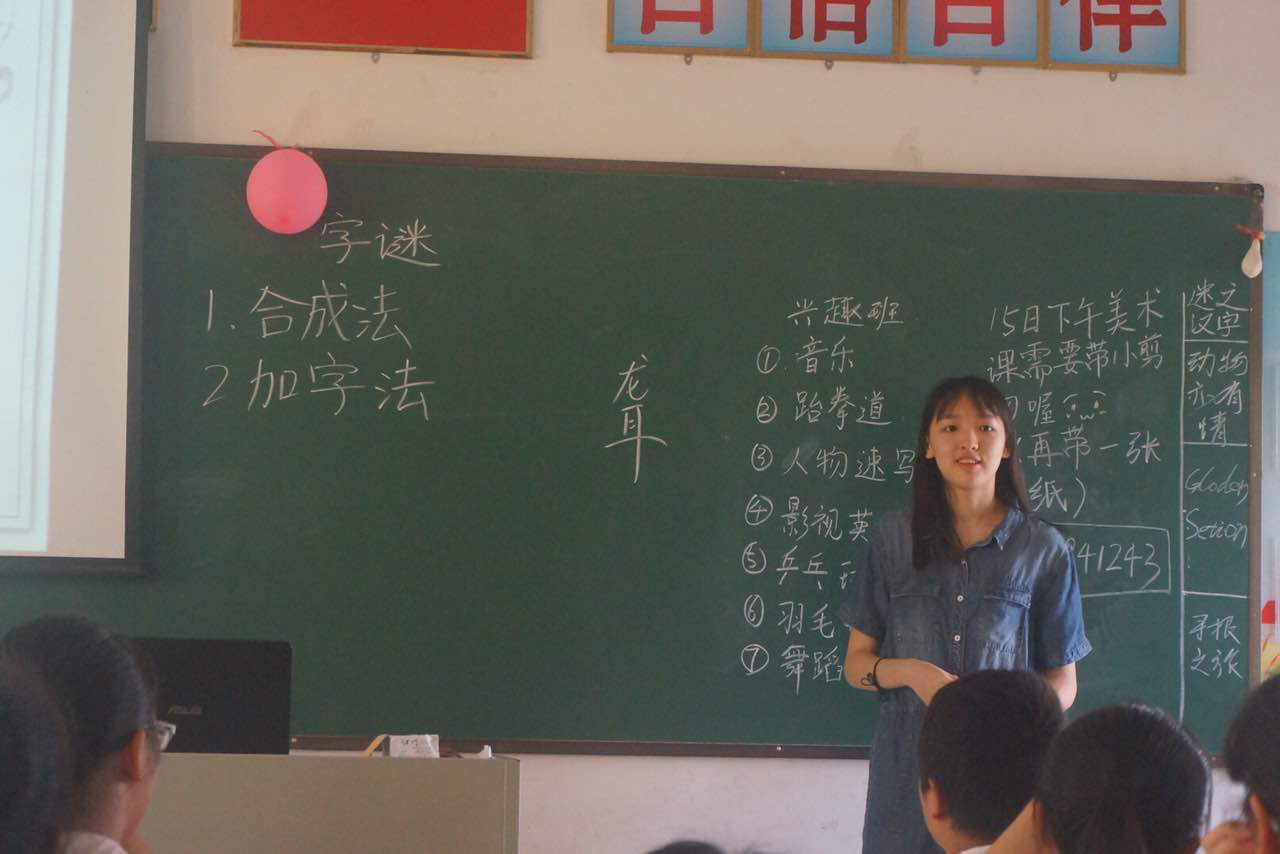 自信自律
字谜
1. 合成法
2 加字法
龙
耳
兴趣班
① 音乐
② 跆拳道
③ 人物速写
④ 影视英
⑤ 乒乓
⑥ 羽毛
⑦ 舞蹈
15日下午美术
课需要带小剪
喔
再带一张
纸)
41243
迷之
汉字
动物
亦有
情
寻根
之旅
ASUS